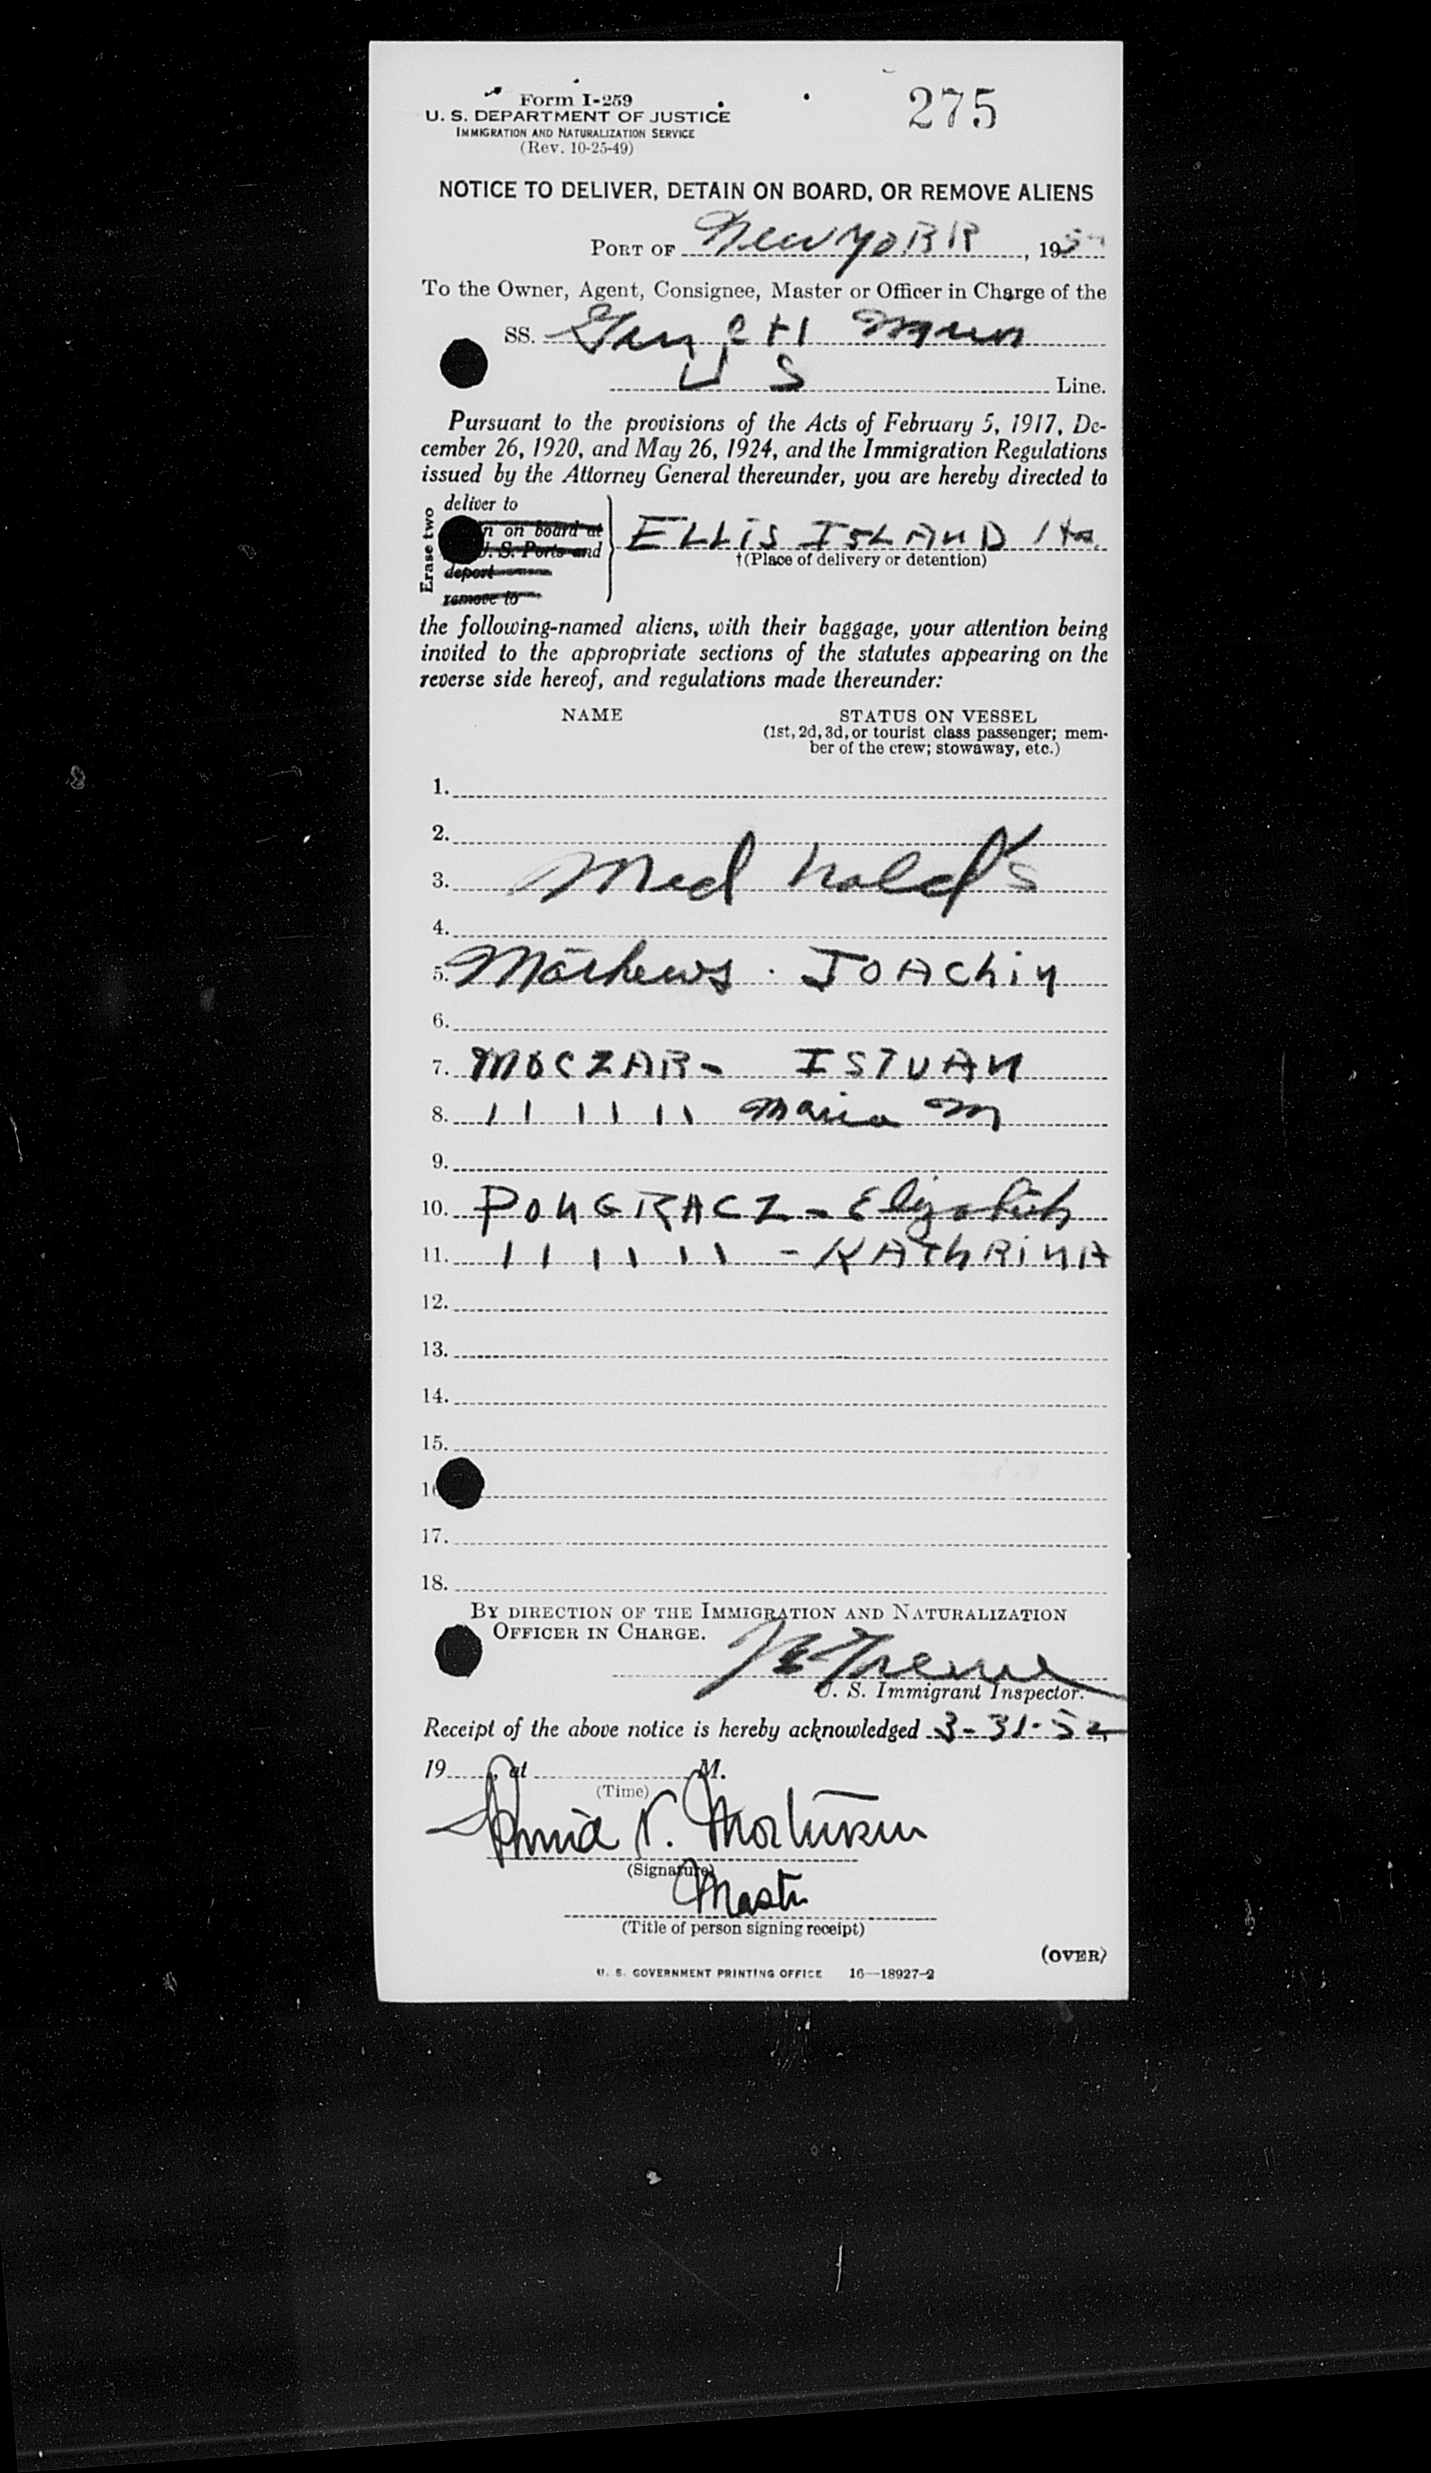 Form I-259
275
U. S. DEPARTMENT OF JUSTICE
IMMIGRATION AND NATURALIZATION SERVICE
(Rev. 10-25-49)
NOTICE TO DELIVER, DETAIN ON BOARD, OR REMOVE ALIENS
PORT OF New YORK, 195
To the Owner, Agent, Consignee, Master or Officer in Charge of the
SS.
U S Line.
Pursuant to the provisions of the Acts of February 5, 1917, De-
cember 26, 1920, and May 26, 1924, and the Immigration Regulations
issued by the Attorney General thereunder, you are hereby directed to
Erase two
deliver to
n on board at
U. S. Ports and
deport
remove to
ELLIS ISLAND
†(Place of delivery or detention)
the following-named aliens, with their baggage, your attention being
invited to the appropriate sections of the statutes appearing on the
reverse side hereof, and regulations made thereunder:
NAME STATUS ON VESSEL
(1st, 2d, 3d, or tourist class passenger; mem-
ber of the crew; stowaway, etc.)
1.
2.
3. Med hold's
4.
5. Mathews. JOAChiN
6.
7. MOCZAR- ISTVAN
8. 11 11 11 Maria M
9.
10. PONGRACZ - Elizabeth
11. 11 11 11 - KAThRiNA
12.
13.
14.
15.
16
17.
18.
BY DIRECTION OF THE IMMIGRATION AND NATURALIZATION
OFFICER IN CHARGE.
U. S. Immigrant Inspector.
Receipt of the above notice is hereby acknowledged 3-31-52
19 , at M.
(Time)
(Signature)
(Title of person signing receipt)
(OVER)
U. S. GOVERNMENT PRINTING OFFICE 16—18927-2